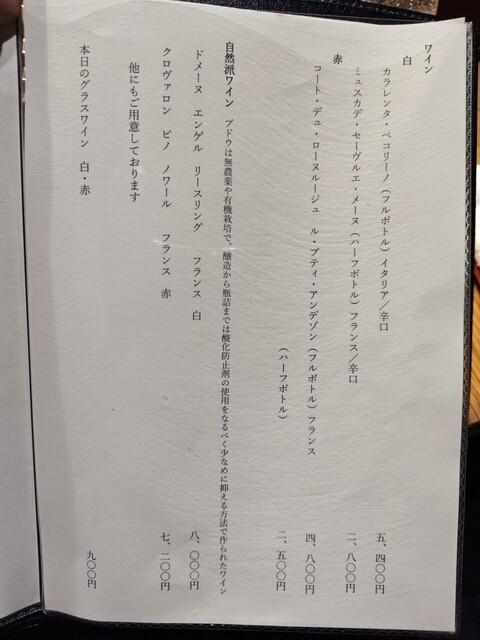 ワイン
白
カラレンタ・ペコリーノ（フルボトル）イタリア／辛口 五、四〇〇円
ミュスカデ・セーヴルエ・メーヌ（ハーフボトル）フランス／辛口 二、八〇〇円
赤
コート・デュ・ローヌルージュ ル・プティ・アンデゾン（フルボトル）フランス 四、八〇〇円
（ハーフボトル） 二、五〇〇円
自然派ワイン ブドウは無農薬や有機栽培で、醸造から瓶詰までは酸化防止剤の使用をなるべく少なめに抑える方法で作られたワイン
ドメーヌ エンゲル リースリング フランス 白 八、〇〇〇円
クロヴァロン ピノ ノワール フランス 赤 七、二〇〇円
他にもご用意しております
本日のグラスワイン 白・赤 九〇〇円